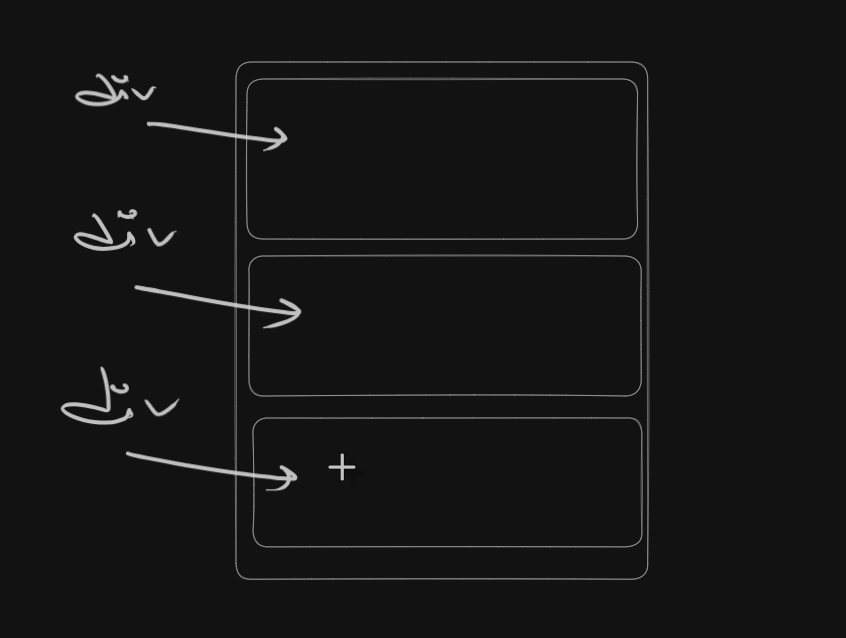 div
div
div